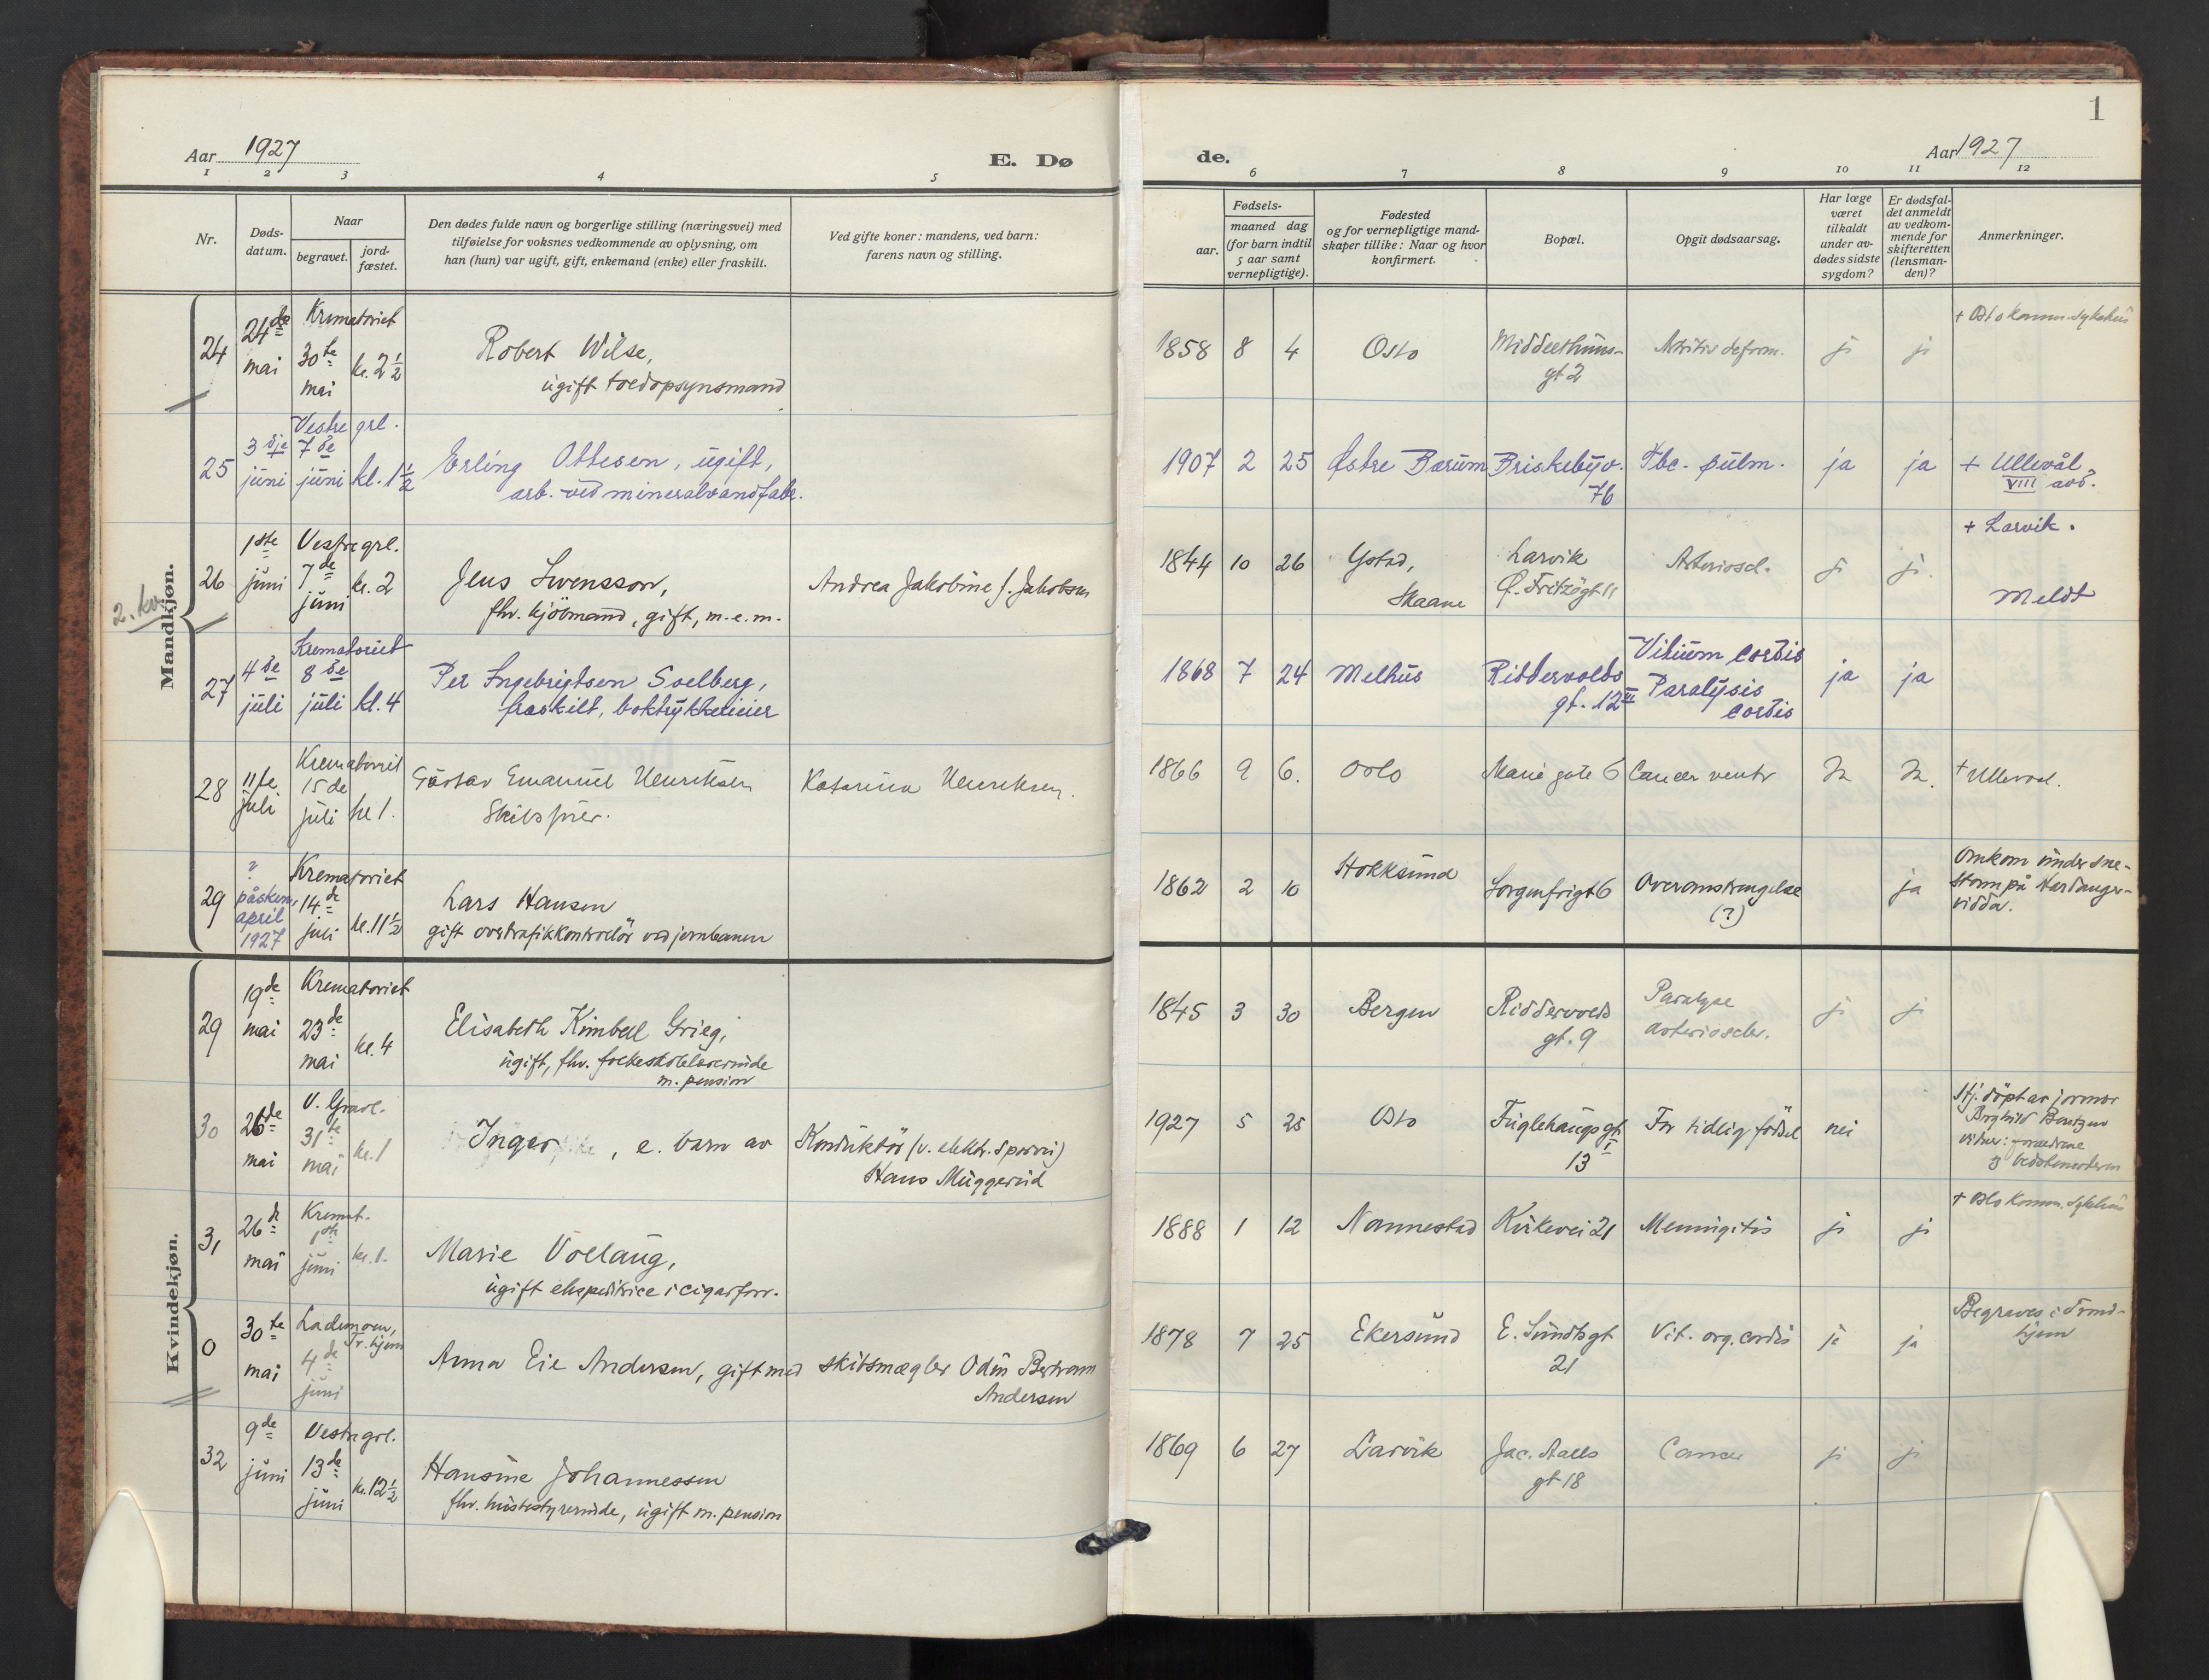 1
Aar 1927
E. Dø
de.
Aar 1927
1 2 3 4 5
6 7 8 9 10 11 12
Nr.
Døds-
datum.
Naar
begravet.
jord-
fæstet.
Den dødes fulde navn og borgerlige stilling (næringsvei) med
tilføielse for voksnes vedkommende av oplysning, om
han (hun) var ugift, gift, enkemand (enke) eller fraskilt.
Ved gifte koner: mandens, ved barn:
farens navn og stilling.
Fødsels-
aar.
maaned dag
(for barn indtil
5 aar samt
vernepligtige).
Fødested
og for vernepligtige mand-
skaper tillike: Naar og hvor
konfirmert.
Bopæl.
Opgit dødsaarsag.
Har læge
været
tilkaldt
under av-
dødes sidste
sygdom?
Er dødsfal-
det anmeldt
av vedkom-
mende for
skifteretten
(lensman-
den)?
Anmerkninger.
Mandkjøn.
2. kv.
24
24de
mai
Krematoriet
30te
mai
kl. 2½
Robert Wilse,
ugift toldopsynsmand
1858 8 4
Oslo
Middelthuns-
gt 2
ja
ja
+ Oslo komm. sykehus
25
3dje
juni
Vestre grl.
7de
juni
kl. 1½
Erling Ottesen, ugift,
arb. ved mineralvandfabr.
1907 2 25
Østre Bærum
Briskebyv.
76
Tbc. pulm.
ja
ja
+ Ullevål
VIII avd.
26
1ste
juni
Vestre grl.
7de
juni
kl. 2
Jens Svensson,
fhv. kjöbmand, gift, m.e.m.
Andrea Jakobine f. Jakobsen
1844 10 26
Ystad,
Skaane
Larvik
Ø. Fritzögt 11
Arterioscl.
ja
ja.
+ Larvik.
Meldt
27
4de
juli
Krematoriet
8de
juli
kl. 4
Per Ingebrigtsen Solberg,
fraskilt, boktrykkerieier
1868 7 24
Melhus
Riddervolds
gt. 12 III
Vitium cordis
Paralysis
cordis
ja
ja
28
11te
juli
Krematoriet
15de
juli
kl 1.
Gustav Emanuel Henriksen
Skibsfører.
Katarina Henriksen.
1866 9 6.
Oslo
Marie gate 6
Cancer ventr
Ja
Ja.
+ Ulleval.
29
?
påsken,
april
1927
Krematoriet
14de
juli
kl. 11½
Lars Hansen
gift overtrafikkontrollör ved jernbanen
1862 2 10
Hokksund
Sorgenfrigt 6
Overanstrengelse
(?)
ja
Omkom under sne-
storm på Hardanger-
vidda.
Kvindekjøn.
29
19de
mai
Krematoriet
23de
mai
kl. 4
Elisabeth Kimbell Grieg,
ugift, fhv. folkeskolelærerinde
m. pension
1845 3 30
Bergen
Riddervolds
gt. 9
Paralyse
arteriescler.
ja
ja
30
26de
mai
V. Gravl.
31te
mai
kl. 1
Inger, e. barn av
Konduktör (v. elektr. sporvei)
Hans Muggerud
1927 5 25
Oslo
Fuglehaugs gt
13 I
For tidlig födsel
nei
Hj. döpt av jormor
Borghild Bentzen
vidner: forældrene
og bedstemoderen
31
26de
mai
Kremat.
1ste
juni
kl. 1.
Marie Vollaug,
ugift ekspeditrice i cigarforr.
1888 1 12
Nannestad
Kirkevei 21
Meningitis
ja
ja
+ Oslo Komm. sykehus
0
30te
mai
Lademoen,
Tr.hjem
4de
juni
Anna Eie Andersen, gift med
skibsmægler Odin Bertram
Andersen
1878 7 25
Ekersund
E. Sundts gt
21
Vit. org. cordis
ja
ja
Begraves i Trond-
hjem
32
9de
juni
Vestre grl.
13de
juni
kl. 12½
Hansine Johannessen
fhv. husbestyrerinde, ugift m. pension
1869 6 27
Larvik
Jac. Aalls
gt 18
Cancer
ja
ja